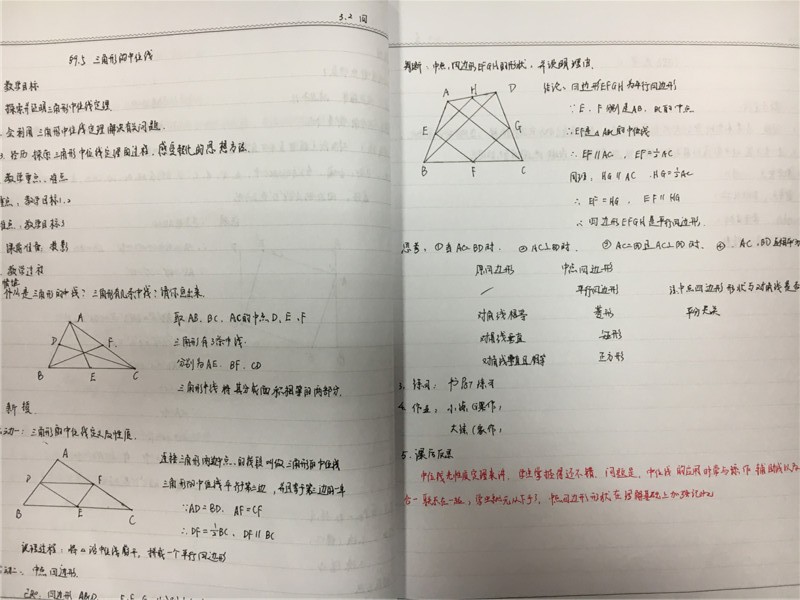 3.2 周
§9.5 三角形的中位线
教学目标
探索并证明三角形中位线定理
会利用三角形中位线定理解决有关问题.
3. 经历探索三角形中位线定理的过程，感受转化的思想方法.
教学重点、难点
重点：教学目标1.2
难点：教学目标3
课前准备：投影
教学过程
什么是三角形的中线？三角形有几条中线？请你画出来.
取AB、BC、AC的中点D、E、F
三角形有3条中线.
分别为AE、BF、CD
三角形中线将其分成面积相等的两部分.
A
D
F
B
E
C
新授
活动一：三角形的中位线定义及性质.
A
D
F
B
C
连接三角形两边中点的线段叫做三角形的中位线
三角形的中位线平行于第三边，并且等于第三边的一半
∵AD=BD，AF=CF
∴DF=½BC，DF∥BC
说理过程：将△沿中位线剪开，拼成一个平行四边形
活动二、中点四边形.
已知：四边形ABCD
判断：中点四边形EFGH的形状，并说明理由.
A
H
D
E
G
B
F
C
结论：四边形EFGH为平行四边形
∵E、F分别是AB、BC的中点
∴EF是△ABC的中位线
∴EF∥AC，EF=½AC
同理：HG∥AC，HG=½AC
∴EF=HG，EF∥HG
∴四边形EFGH是平行四边形.
思考：①当AC=BD时. ②AC⊥BD时. ③AC=BD且AC⊥BD时. ④ AC、BD互相平分
原四边形 中点四边形
/ 平行四边形 注中点四边形形状与对角线是否
对角线相等 菱形 平分无关
对角线垂直 矩形
对角线垂直且相等 正方形
3. 练习：书P87 练习
4. 作业：
5. 课后反思
中位线性质定理来讲，学生掌握得还不错，问题是，中位线的应用时常与